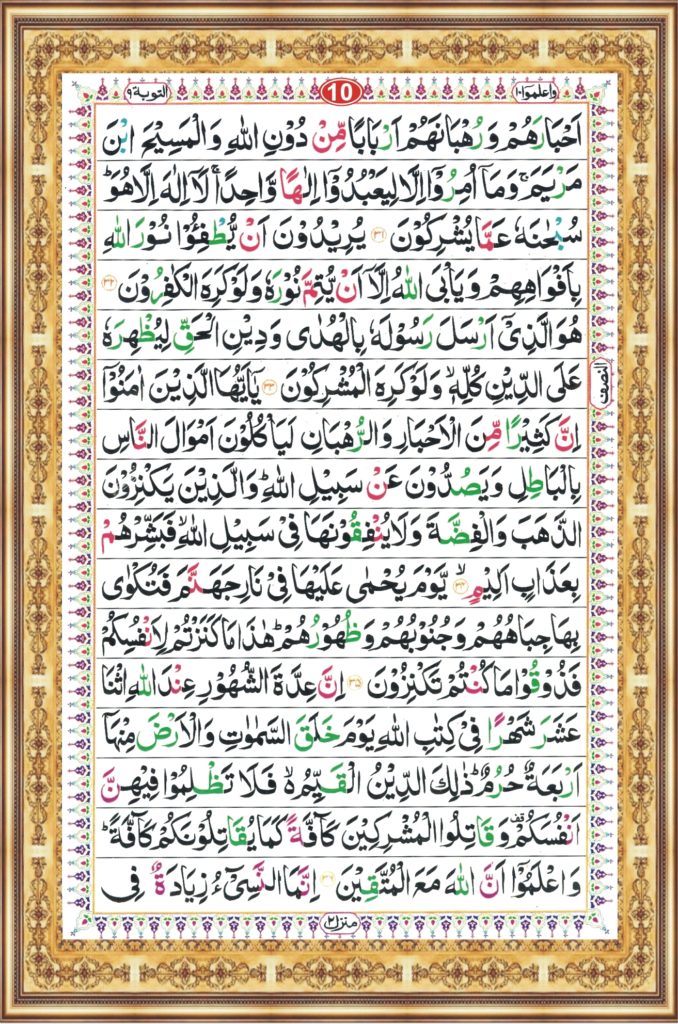 واعلموا۱۰
10
التوبة۹
اَحْبَارَهُمْ وَرُهْبَانَهُمْ اَرْبَابًا مِّنْ دُوْنِ اللّٰهِ وَالْمَسِيْحَ ابْنَ
مَرْيَمَ ۚ وَمَاۤ اُمِرُوْۤا اِلَّا لِيَعْبُدُوْۤا اِلٰهًا وَّاحِدًا ۚ لَاۤ اِلٰهَ اِلَّا هُوَ ؕ
سُبْحٰنَهٗ عَمَّا يُشْرِكُوْنَ ﴿۳۱﴾ يُرِيْدُوْنَ اَنْ يُّطْفِـُٔوْا نُوْرَ اللّٰهِ
بِاَفْوَاهِهِمْ وَيَاْبَى اللّٰهُ اِلَّاۤ اَنْ يُّتِمَّ نُوْرَهٗ وَلَوْ كَرِهَ الْكٰفِرُوْنَ ﴿۳۲﴾
هُوَ الَّذِيْۤ اَرْسَلَ رَسُوْلَهٗ بِالْهُدٰى وَدِيْنِ الْحَقِّ لِيُظْهِرَهٗ
عَلَى الدِّيْنِ كُلِّهٖ ۙ وَلَوْ كَرِهَ الْمُشْرِكُوْنَ ﴿۳۳﴾ يٰۤاَيُّهَا الَّذِيْنَ اٰمَنُوْۤا
النصف
اِنَّ كَثِيْرًا مِّنَ الْاَحْبَارِ وَالرُّهْبَانِ لَيَاْكُلُوْنَ اَمْوَالَ النَّاسِ
بِالْبَاطِلِ وَيَصُدُّوْنَ عَنْ سَبِيْلِ اللّٰهِ ؕ وَالَّذِيْنَ يَكْنِزُوْنَ
الذَّهَبَ وَالْفِضَّةَ وَلَا يُنْفِقُوْنَهَا فِيْ سَبِيْلِ اللّٰهِ ۙ فَبَشِّرْهُمْ
بِعَذَابٍ اَلِيْمٍ ۙ ﴿۳۴﴾ يَّوْمَ يُحْمٰى عَلَيْهَا فِيْ نَارِ جَهَنَّمَ فَتُكْوٰى
بِهَا جِبَاهُهُمْ وَجُنُوْبُهُمْ وَظُهُوْرُهُمْ ؕ هٰذَا مَا كَنَزْتُمْ لِاَنْفُسِكُمْ
فَذُوْقُوْا مَا كُنْتُمْ تَكْنِزُوْنَ ﴿۳۵﴾ اِنَّ عِدَّةَ الشُّهُوْرِ عِنْدَ اللّٰهِ اثْنَا
عَشَرَ شَهْرًا فِيْ كِتٰبِ اللّٰهِ يَوْمَ خَلَقَ السَّمٰوٰتِ وَالْاَرْضَ مِنْهَاۤ
اَرْبَعَةٌ حُرُمٌ ؕ ذٰلِكَ الدِّيْنُ الْقَيِّمُ ۙ۬ فَلَا تَظْلِمُوْا فِيْهِنَّ
اَنْفُسَكُمْ ۫ وَقَاتِلُوا الْمُشْرِكِيْنَ كَآفَّةً كَمَا يُقَاتِلُوْنَكُمْ كَآفَّةً ؕ
وَاعْلَمُوْۤا اَنَّ اللّٰهَ مَعَ الْمُتَّقِيْنَ ﴿۳۶﴾ اِنَّمَا النَّسِيْٓءُ زِيَادَةٌ فِى
منزل۲